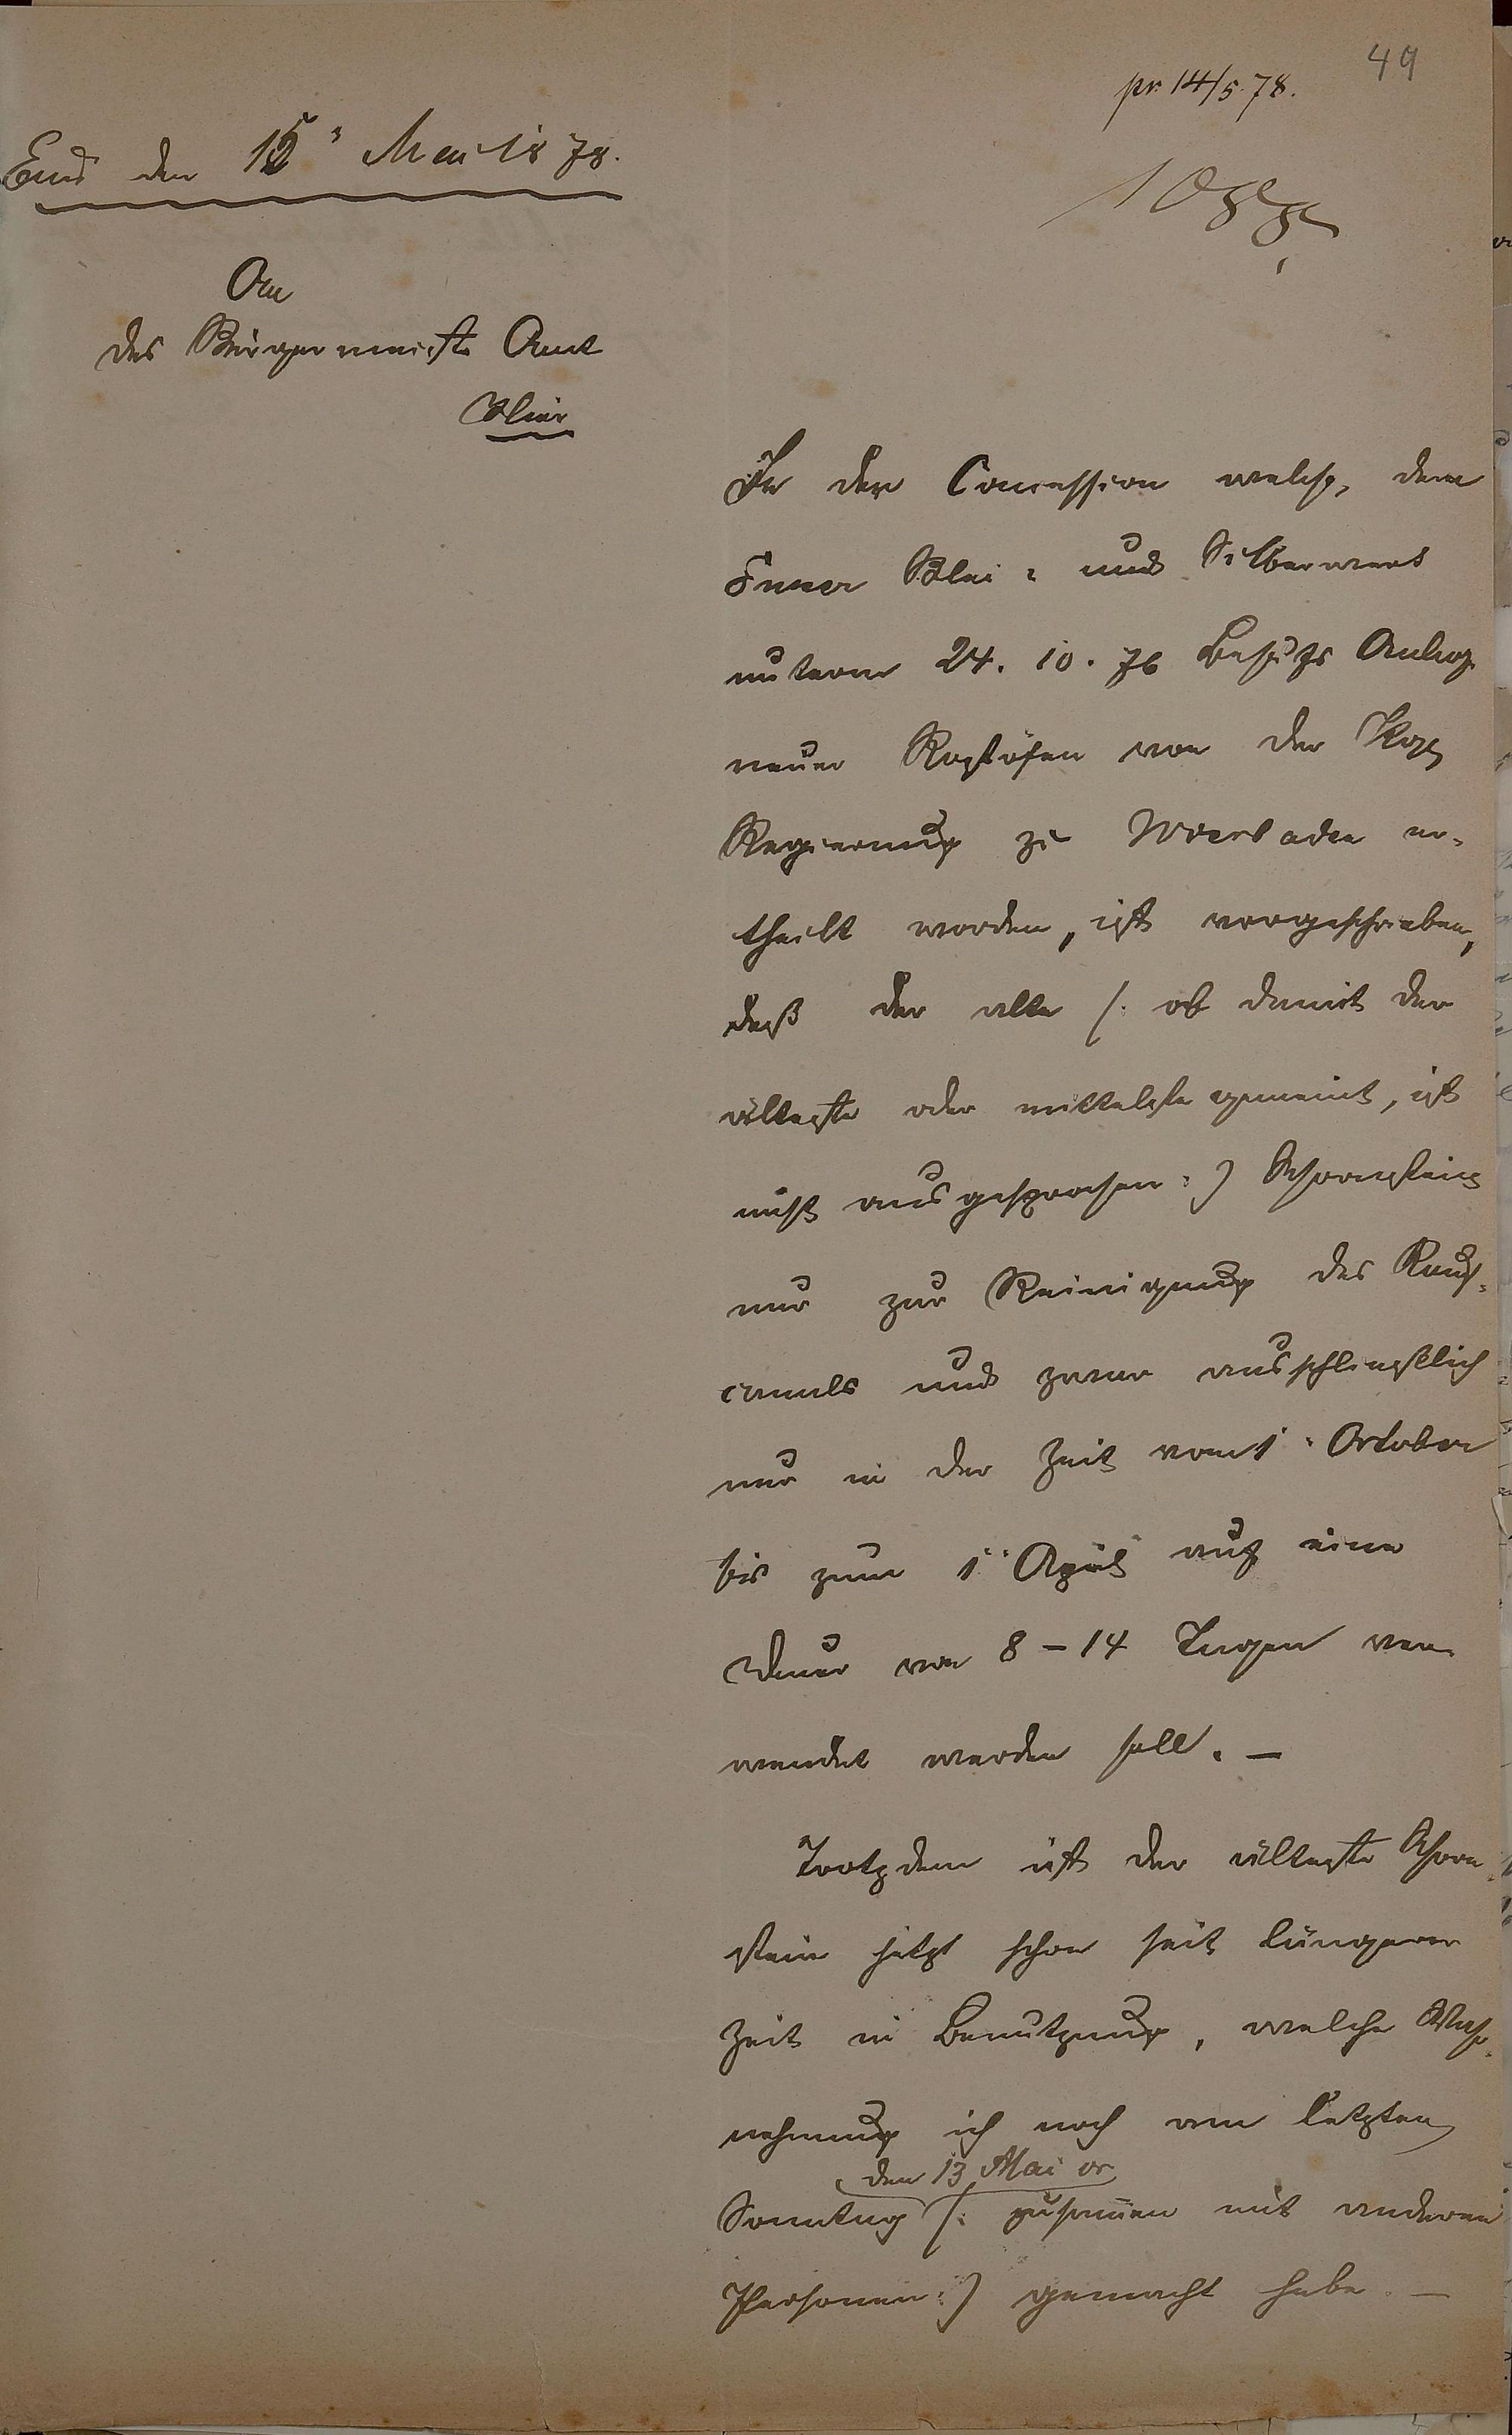 49
pr. 14/5. 78.
Ems den 15" Mai 1878.
An
das Bürgermeister Amt
Hier
In der Concession welche, dem
Emser Blei- und Silberwerk
unterm 24. 10. 76 behufs Anlage
neuer Rostöfen von der Kgl
Regierung zu Wiesbaden er-
theilt worden, ist vorgeschrieben,
daß der alte /: ob damit der
älteste oder mittelste gemeint, ist
nicht ausgesprochen :/ Schornstein
nur zur Reinigung des Rauch-
canals und zwar ausschließlich
nur in der Zeit vom 1. October
bis zum 1. April auf eine
Dauer von 8-14 Tagen ver-
wendet werden soll. —
Trotzdem ist der älteste Schorn-
stein jetzt schon seit längerer
Zeit in Benutzung, welche Wahr-
nehmung ich noch am letzten
den 13 Mai cr
Sonntag /: zusam̄en mit anderen
Personen :/ gemacht habe. —